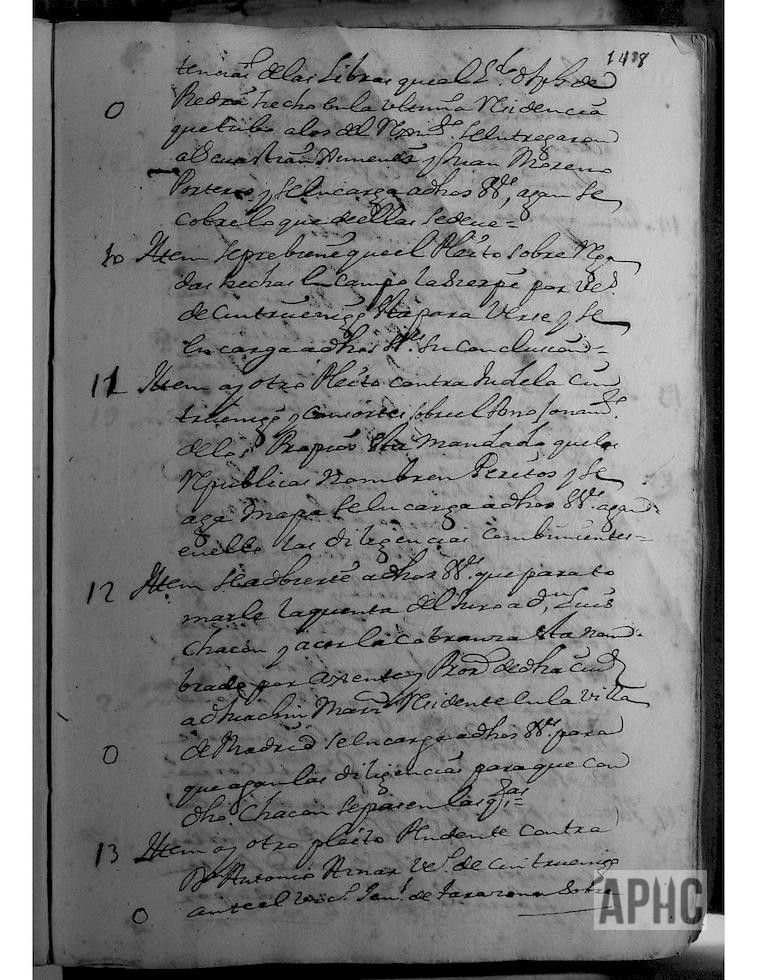 148
tencias de las Libras que el Sr. dn Jph de
Piedra hecho en la ultima Residencia
que tubo a los del Se entregaron
a Seuastian Ximenez y Juan Moreno
Porteros y se encarga a dhos SSes. agan se
cobre lo que de ellas se deue =
10 Ittem se prebiene que el Pleito sobre
das hechas en Campo la Sierpe por Vess.
de Cintruenigo sta para Verse y se
encarga a dhos SSes. su Conclusion =
11 Ittem ay otro Pleito contra Tudela Cin
truenigo y consortes sobre el
de los Propios sta mandado que las
Republicas nombren Peritos y se
aga mapa se encarga a dhos SSes. agan
en ello las diligencias combinientes =
12 Ittem se adbierte a dhos SSes. que para to
marle la quenta del Juro a dn Luis
Chacon y açer la Cobranza sta nom
brado por Axente y Pror. de dha Ciud
a Juachin Marin Residente en la Villa
de Madrid se encarga a dhos SSes. para
que agan las diligencias para que con
dho. Chacon se pasen las qtas =
13 Ittem ay otro pleito Pendente contra
Dn Antonio Aznar Veo. de Cintruenigo
ante el Vico. Jen.l de Tarazona Sobre
APHC